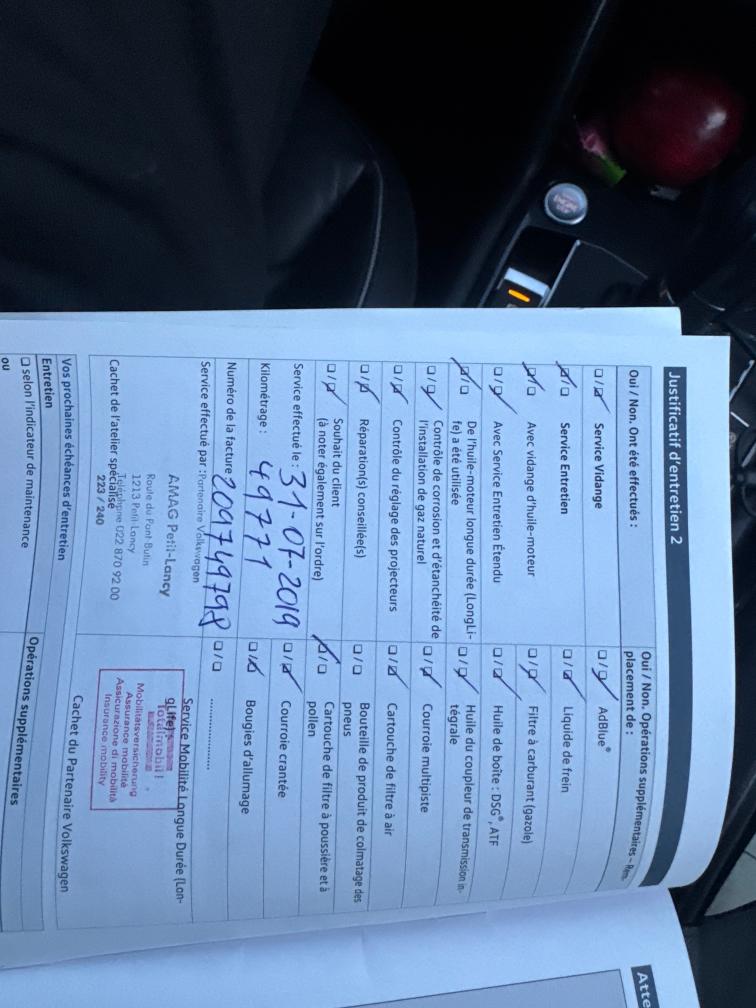 Justificatif d'entretien 2
Oui / Non. Ont été effectués :
☐ / ☒ Service Vidange
☒ / ☐ Service Entretien
☒ / ☐ Avec vidange d'huile-moteur
☐ / ☒ Avec Service Entretien Étendu
☒ / ☐ De l'huile-moteur longue durée (LongLi-
fe) a été utilisée
☐ / ☒ Contrôle de corrosion et d'étanchéité de
l'installation de gaz naturel
☐ / ☒ Contrôle du réglage des projecteurs
☐ / ☒ Réparation(s) conseillée(s)
☐ / ☒ Souhait du client
(à noter également sur l'ordre)
Service effectué le : 31-07-2019
Kilométrage : 49771
Numéro de la facture 209749798
Service effectué par : Partenaire Volkswagen
AMAG Petit-Lancy
Route du Pont Butin
1213 Petit-Lancy
Téléphone 022 870 92 00
Cachet de l'atelier spécialisé
223 / 240
Oui / Non. Opérations supplémentaires – Rem-
placement de :
☐ / ☒ AdBlue®
☐ / ☒ Liquide de frein
☐ / ☒ Filtre à carburant (gazole)
☐ / ☒ Huile de boîte : DSG®, ATF
☐ / ☒ Huile du coupleur de transmission in-
tégrale
☐ / ☒ Courroie multipiste
☐ / ☒ Cartouche de filtre à air
☐ / ☐ Bouteille de produit de colmatage des
pneus
☒ / ☐ Cartouche de filtre à poussière et à
pollen
☐ / ☒ Courroie crantée
☐ / ☒ Bougies d'allumage
☐ / ☐ ....................
Service Mobilité Longue Durée (Lon-
gLife)
Totalmobil!
Mobilitätsversicherung
Assurance mobilité
Assicurazione di mobilità
Insurance mobility
Cachet du Partenaire Volkswagen
Vos prochaines échéances d'entretien
Entretien
Opérations supplémentaires
☐ selon l'indicateur de maintenance
ou
Atte